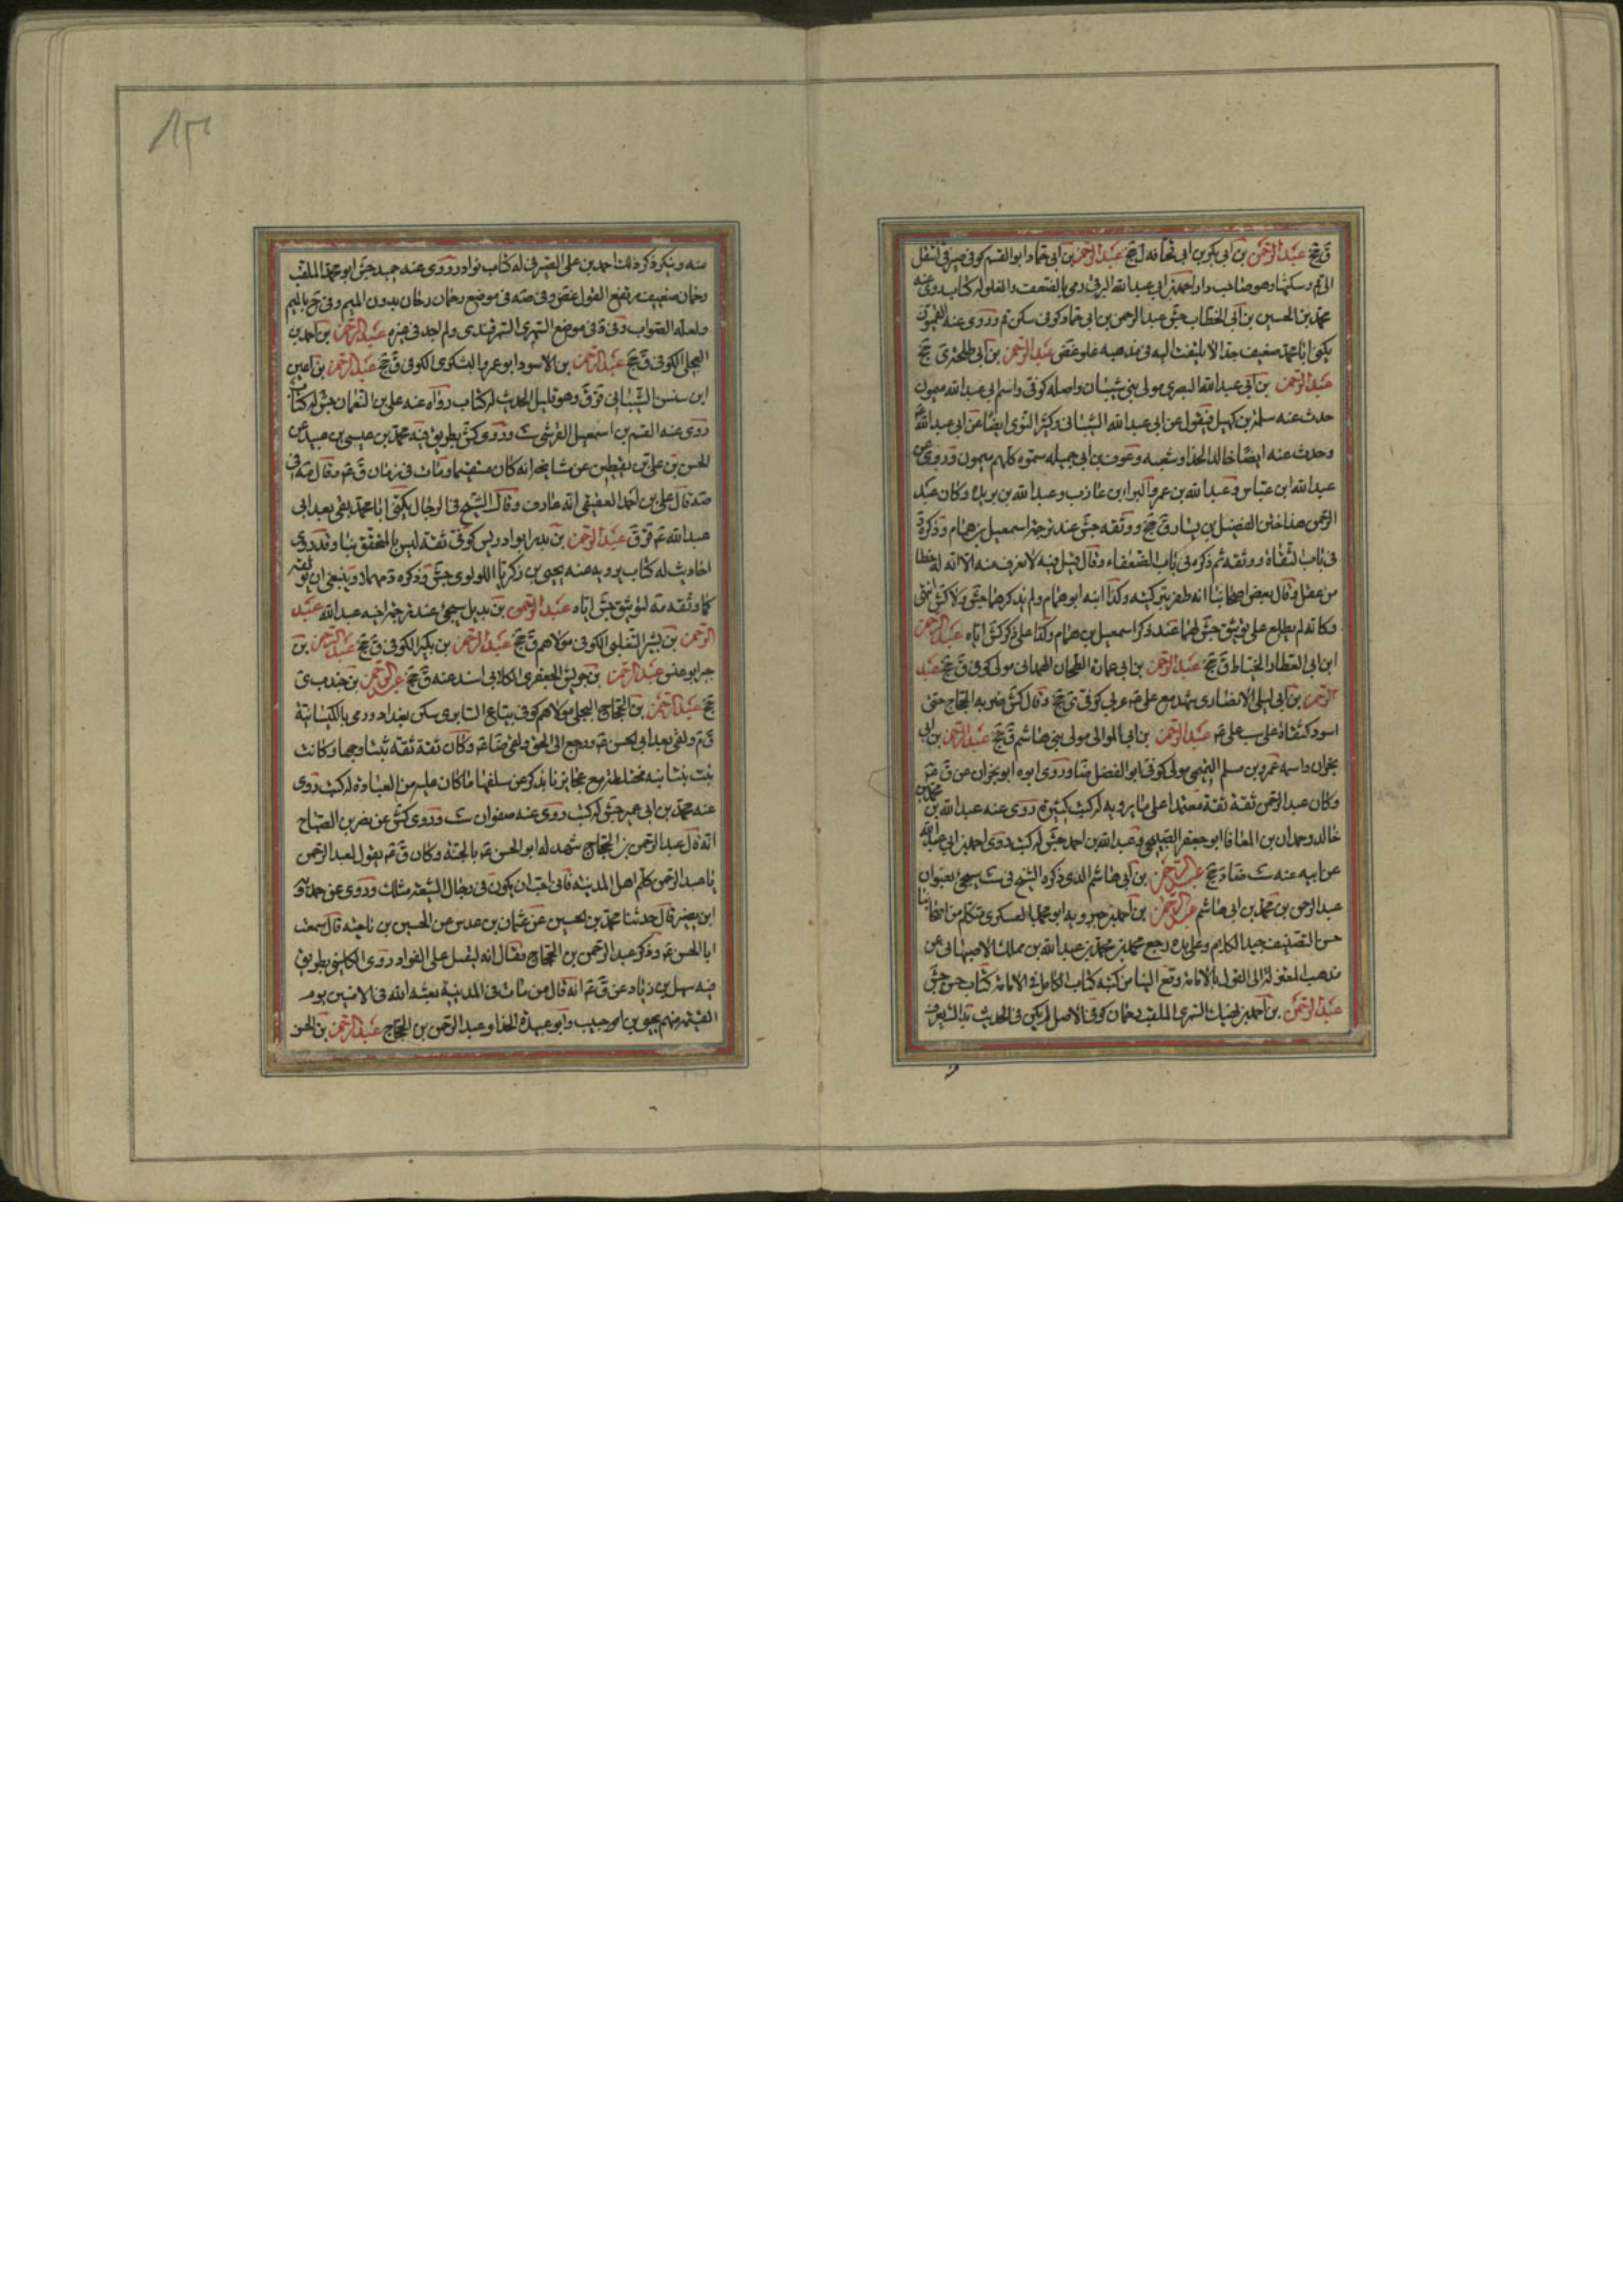 ق جخ عبد الرحمن بن ابي بكر بن ابي قحافه ل جخ عبد الرحمن بن ابي حماد ابو القسم كوفي صيرفي انتقل
الى قم وسكنها وهو صاحب دار احمد بن ابي عبد الله البرقي رمي بالضعف والغلو له كتاب روى عنه
محمد بن الحسين بن ابي الخطاب جش عبد الرحمن بن ابي حماد كوفي سكن قم وروى عنه القميون
يكنى ابا محمد ضعيف جدا لا يلتفت اليه في مذهبه غلو غض عبد الرحمن بن ابي طلحة ى جخ
عبد الرحمن بن ابي عبد الله البصري مولى بني شيبان واصله كوفي واسم ابي عبد الله ميمون
حدث عنه سلمة بن كهيل فيقول عن ابي عبد الله الشيباني وكثير النوى ايضا عن ابي عبد الله
وحدث عنه ايضا خالد الحذاء وشعبه وعوف بن ابي جميله سموه كلهم ميمون وروى عن
عبد الله ابن عباس وعبد الله بن عمر والبراء بن عازب وعبد الله بن بريده وكان عبد
الرحمن هذا ختن الفضيل بن يسار ق جخ ووثقه جش عند ترجمة اسمعيل بن همام وذكره د
في باب الثقاة ووثقه ثم ذكره في باب الضعفاء وقال قيل فيه لا نعرف منه الا انه له خطا
من عقل وقال بعض اصحابنا انه ظفر بتركيبه وكذا ابنه ابو همام ولم يذكرهما جش ولا كش انتهى
وكانه لم يطلع على توثيق جش لهما عند ذكر اسمعيل بن همام وكذا على ذكر كش اياه عبد الرحمن
ابن ابي العطار الخياط ق جخ عبد الرحمن بن ابي عمارة الطحان الهمداني مولى كوفي ق جخ عبد
الرحمن بن ابي ليلى الانصاري شهد مع علي ع عربي كوفي ى جخ وقال كش ضربه الحجاج حتى
اسود كتفاه على سب علي ع عبد الرحمن بن ابي الموالى مولى بني هاشم ق جخ عبد الرحمن بن ابي
نجران واسمه عمرو بن مسلم التميمي مولى كوفي ابو الفضل ضا وروى ابوه ابو نجران عن ق ع
وكان عبد الرحمن ثقة ثقة معتمدا على ما يرويه له كتب كثيرة روى عنه عبد الله بن محمد بن
خالد وحمدان بن المعافا ابو جعفر الصبيحي وعبد الله بن احمد جش له كتب روى احمد بن ابي عبد الله
عن ابيه عنه ست ضا د جخ عبد الرحمن بن ابي هاشم الذي ذكره الشيخ في ست سيجئ بعنوان
عبد الرحمن بن محمد بن ابي هاشم عبد الرحمن بن احمد بن جبرويه ابو محمد العسكري متكلم من اصحابنا
حسن التصنيف جيد الكلام وعلى يده رجع محمد بن محمد بن عبد الله بن مملك الاصبهاني عن
مذهب المعتزلة الى القول بالامامة وقع الينا من كتبه كتاب الكامل في الامامة كتاب حسن جش
عبد الرحمن بن احمد بن نهيك السمري الملقب دحمان كوفي الاصل لم يكن في الحديث بذاك يعرف
منه وينكر ذكر ذلك احمد بن علي الصيرفي له كتاب نوادر روى عنه حميد جش ابو محمد الملقب
دحمان ضعيف مرتفع القول غض وفي صه في موضع دحمان دحان بدون الميم وفي ح بالميم
ولعله الصواب وفي د في موضع السمري السمرقندي ولم اجد في غيره عبد الرحمن بن احمد بن
البجلي الكوفي ق جخ عبد الرحمن بن الاسود ابو عمر اليشكري الكوفي ق جخ عبد الرحمن بن اعين
ابن سنسن الشيباني قر ق وهو قليل الحديث له كتاب رواه عنه علي بن النعمان جش له كتاب
روى عنه القسم بن اسمعيل القرشي ست وروى كش بطريق فيه محمد بن عيسى بن عبيد عن
الحسن بن علي بن يقطين عن مشايخه انه كان مستقيما ومات في زمان ق ع وقال صه في
صه قال علي بن احمد العقيقي انه عارف وقال الشيخ في الرجال يكنى ابا محمد بقي بعد ابي
عبد الله ع قر ق عبد الرحمن بن بدر ابو ادريس كوفي ثقة ليس بالمتحقق بنا وقد روى
احاديث له كتاب يرويه عنه يحيى بن زكريا اللولوي جش وذكره د مهملا وينبغي ان يوثقه
كما وثقه صه لتوثيق جش اياه عبد الرحمن بن بديل سيجئ عند ترجمة اخيه عبد الله عبد
الرحمن بن بشر التغلبي الكوفي مولاهم ق جخ عبد الرحمن بن بكير الكوفي ق جخ عبد الرحمن بن
جبر ابو عبس عبد الرحمن بن جويش الجعفري الكلابي اسند عنه ق جخ عبد الرحمن بن جندب ى
جخ عبد الرحمن بن الحجاج البجلي مولاهم كوفي بياع السابري سكن بغداد ورمي بالكيسانية
ق م وبقي بعد ابي الحسن ع ورجع الى الحق ولقي ضا ع وكان ثقة ثقة ثبتا وجها وكانت
بنت بنت ابنه مختلطة مع عجايزنا يذكر عن سلفها ما كان عليه من العبادة له كتب روى
عنه محمد بن ابي عمير جش له كتب روى عنه صفوان ست وروى كش عن نصر بن الصباح
انه قال عبد الرحمن بن الحجاج شهد له ابو الحسن ع بالجنة وكان ق ع يقول لعبد الرحمن
يا عبد الرحمن كلم اهل المدينة فاني احب ان يكون في رجال الشيعة مثلك وروى عن حمدويه
ابن نصير قال حدثنا محمد بن الحسين عن عثمان بن عدس عن الحسين بن ناجية قال سمعت
ابا الحسن ع وذكر عبد الرحمن بن الحجاج فقال انه لثقيل على الفواد وروى الكليني بطريق
فيه سهل بن زياد عن ق ع انه قال من مات في المدينة بعثه الله في الامنين يوم
القيمة منهم يحيى بن حبيب وابو عبيدة الحذا وعبد الرحمن بن الحجاج عبد الرحمن بن الحسن